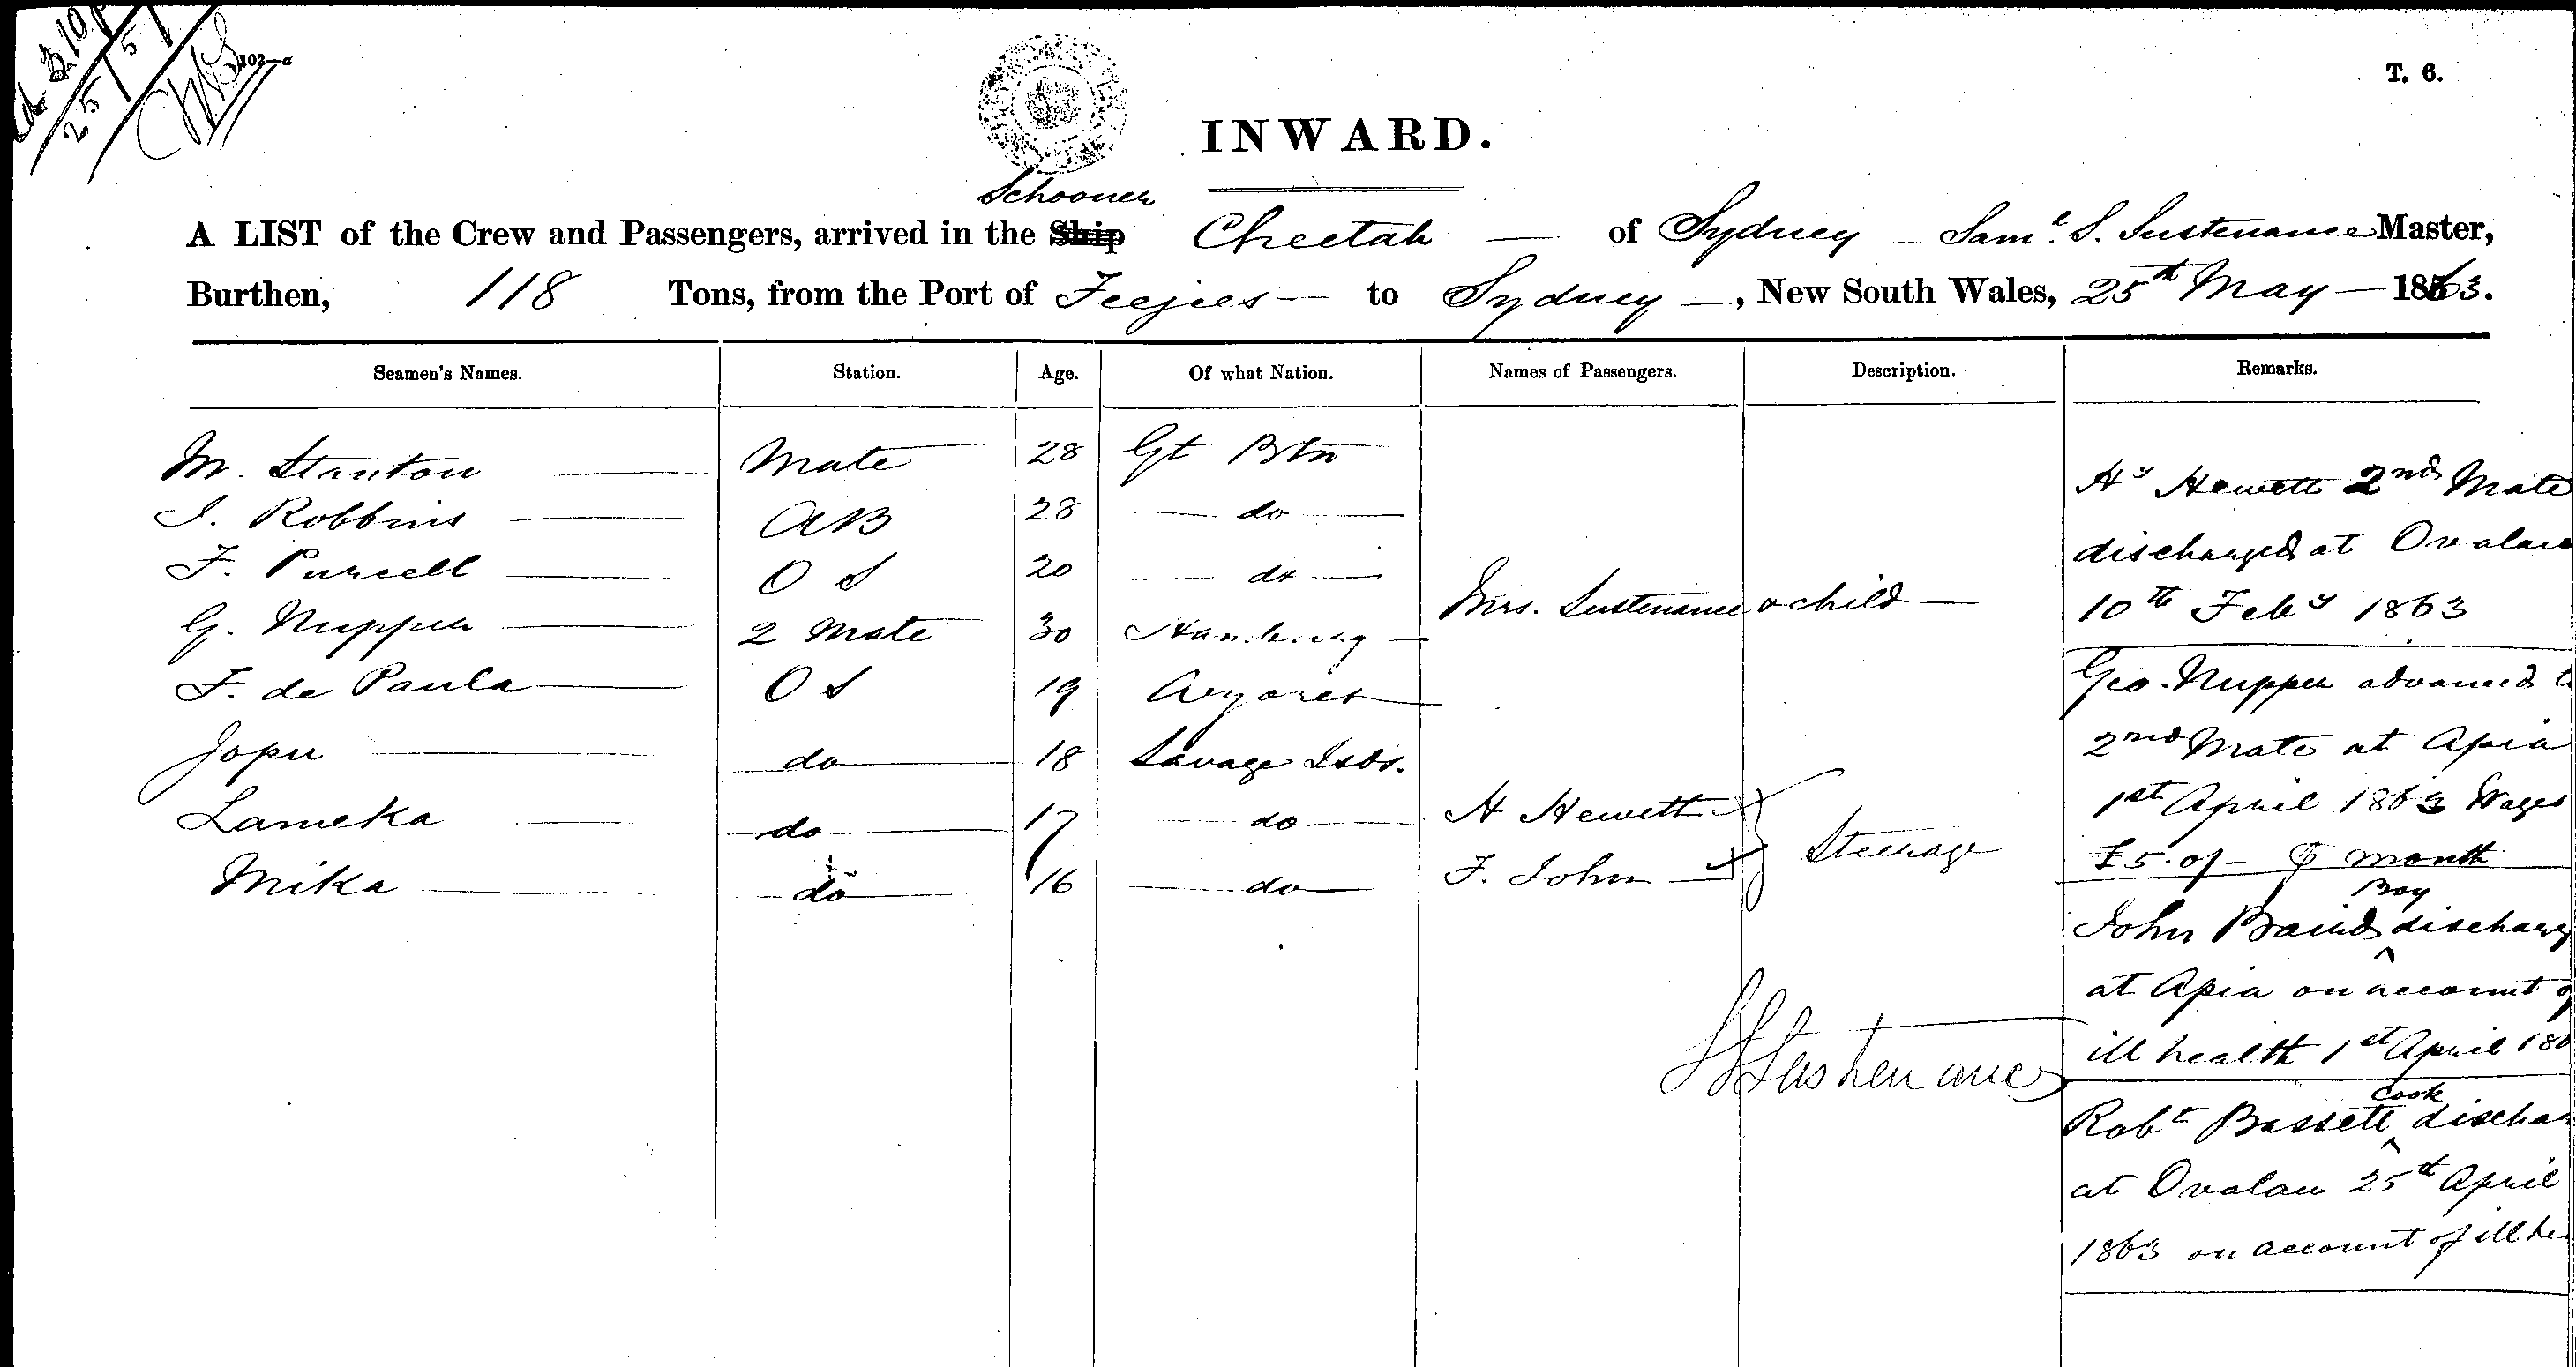 25/5/
102—a
T. 6.
INWARD.
Schooner
A LIST of the Crew and Passengers, arrived in the Ship Cheetah — of Sydney Saml. S. Sustenance Master,
Burthen, 118 Tons, from the Port of Feejees — to Sydney —, New South Wales, 25th May — 1863.
Seamen's Names. Station. Age. Of what Nation. Names of Passengers. Description. Remarks.
M. Stanton Mate 28 Gt Btn
J. Robbins AB 28 do
F. Purcell O S 20 do
G. Nupper 2 Mate 30 Hamburg
F. de Paula O S 19 Azores
Jopu do 18 Savage Isds.
Lameka do 17 do
Mika do 16 do
Mrs. Sustenance & child —
H Hewett
F. John
Steerage
SSustenance
Hy Hewett 2nd Mate
discharged at Ovalau
10th Feby 1863
Geo. Nupper advanced
2nd Mate at Apia
1st April 1863 Wages
£5.0/- ⅌ month
Boy
John Baird discharg
at Apia on account of
ill health 1st April 186
Cook
Robt Bassett dischar
at Ovalau 25th April
1863 on account of ill he